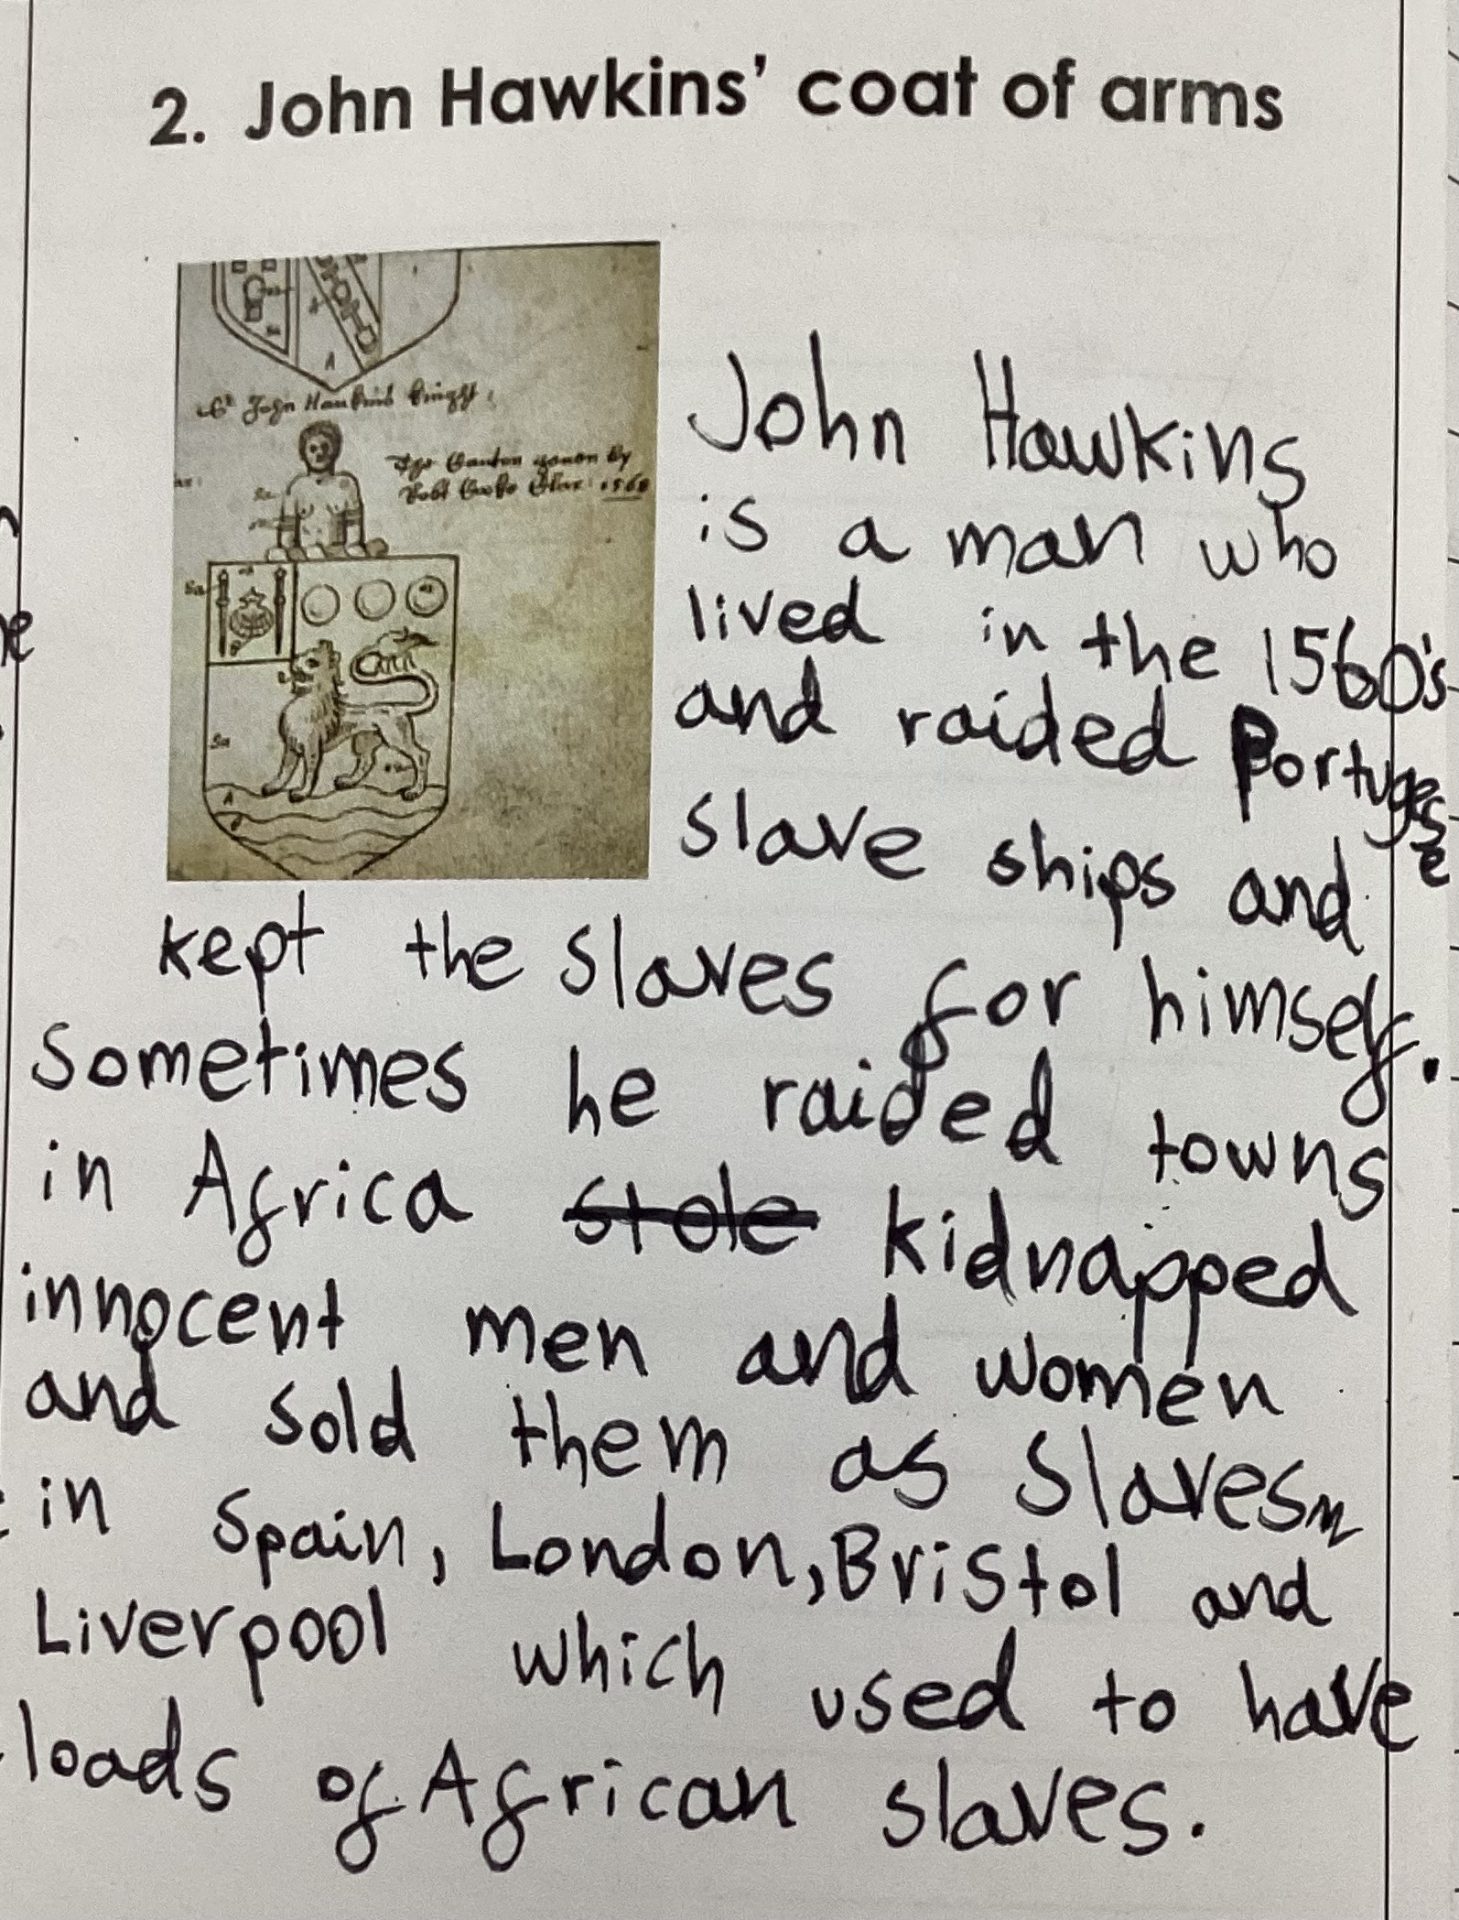 2. John Hawkins' coat of arms
Sr John Hawkins knight
1568
John Hawkins
is a man who
lived in the 1560's
and raided Portugese
slave ships and
kept the slaves for himself.
Sometimes he raided towns
in Africa stole kidnapped
innocent men and women
and sold them as slaves
in Spain, London, Bristol and
Liverpool which used to have
loads of African slaves.